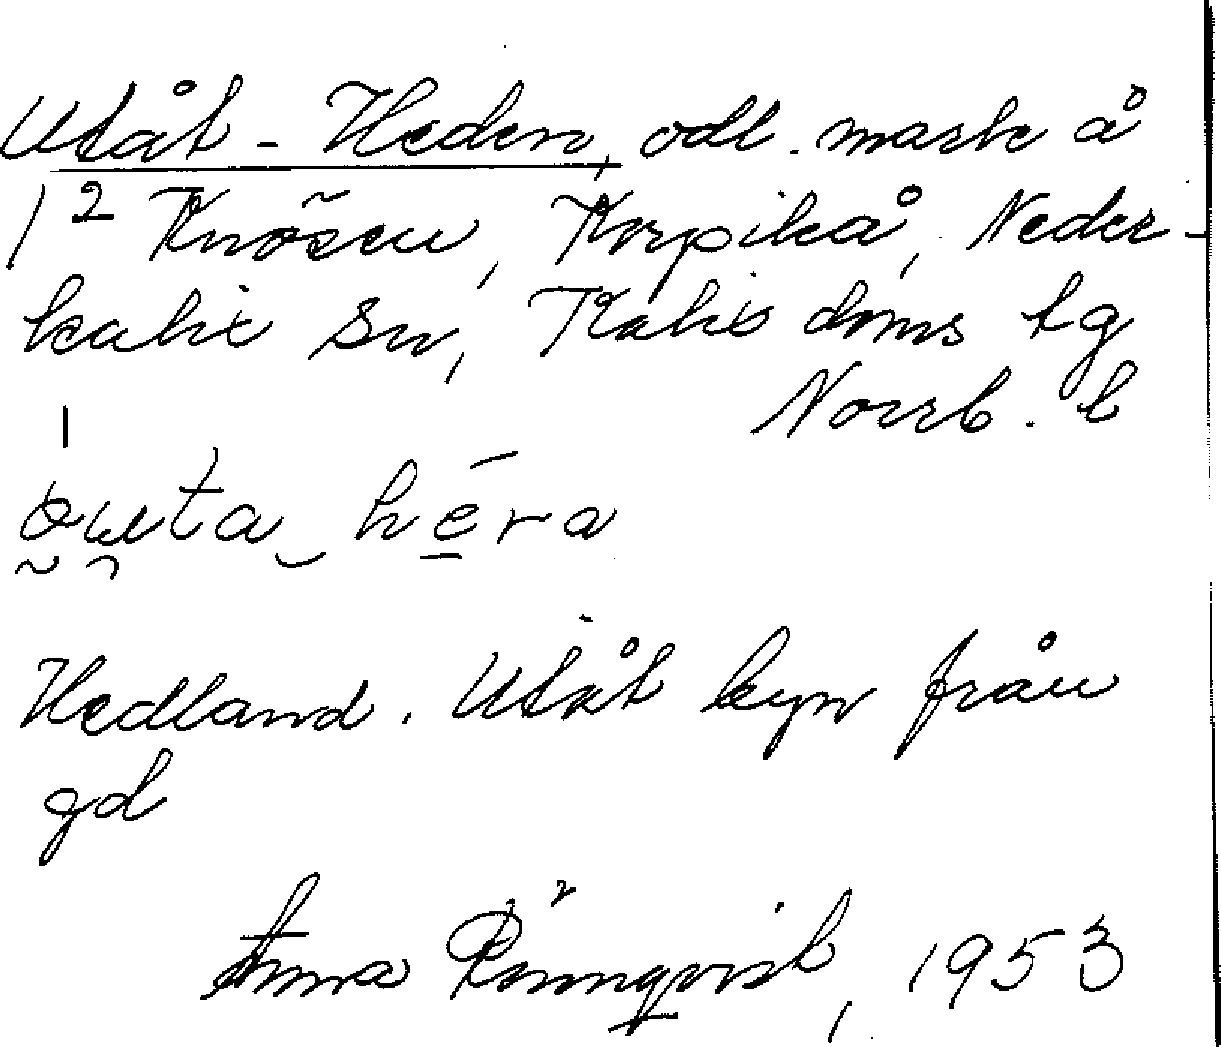 Utåt-Heden, odl. mark å
1² Knösen, Korpikå, Neder-
kalix sn, Kalix doms tg
Norrb. l
Hedland. Utåt byn från
gd
Anna Rönnqvist, 1953